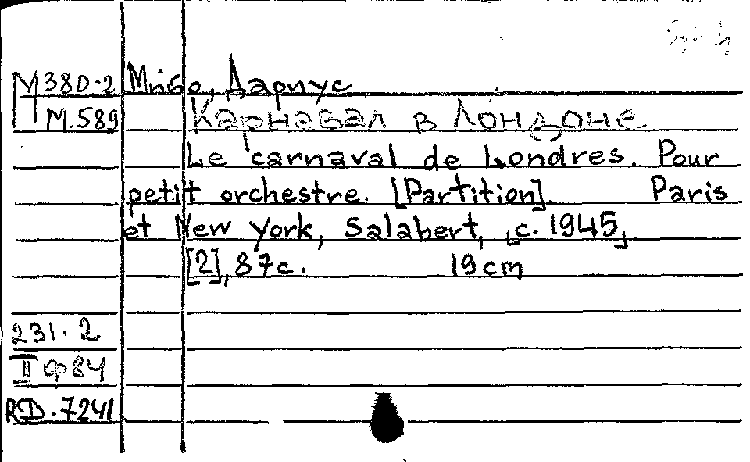 М380-2 Мийо, Дариус
М.589 Карнавал в Лондоне
Le carnaval de Londres. Pour
petit orchestre. [Partition]. Paris
et New York, Salabert, [c. 1945]
[2], 87с. 19cm
231-2
II ф84
RD.7241